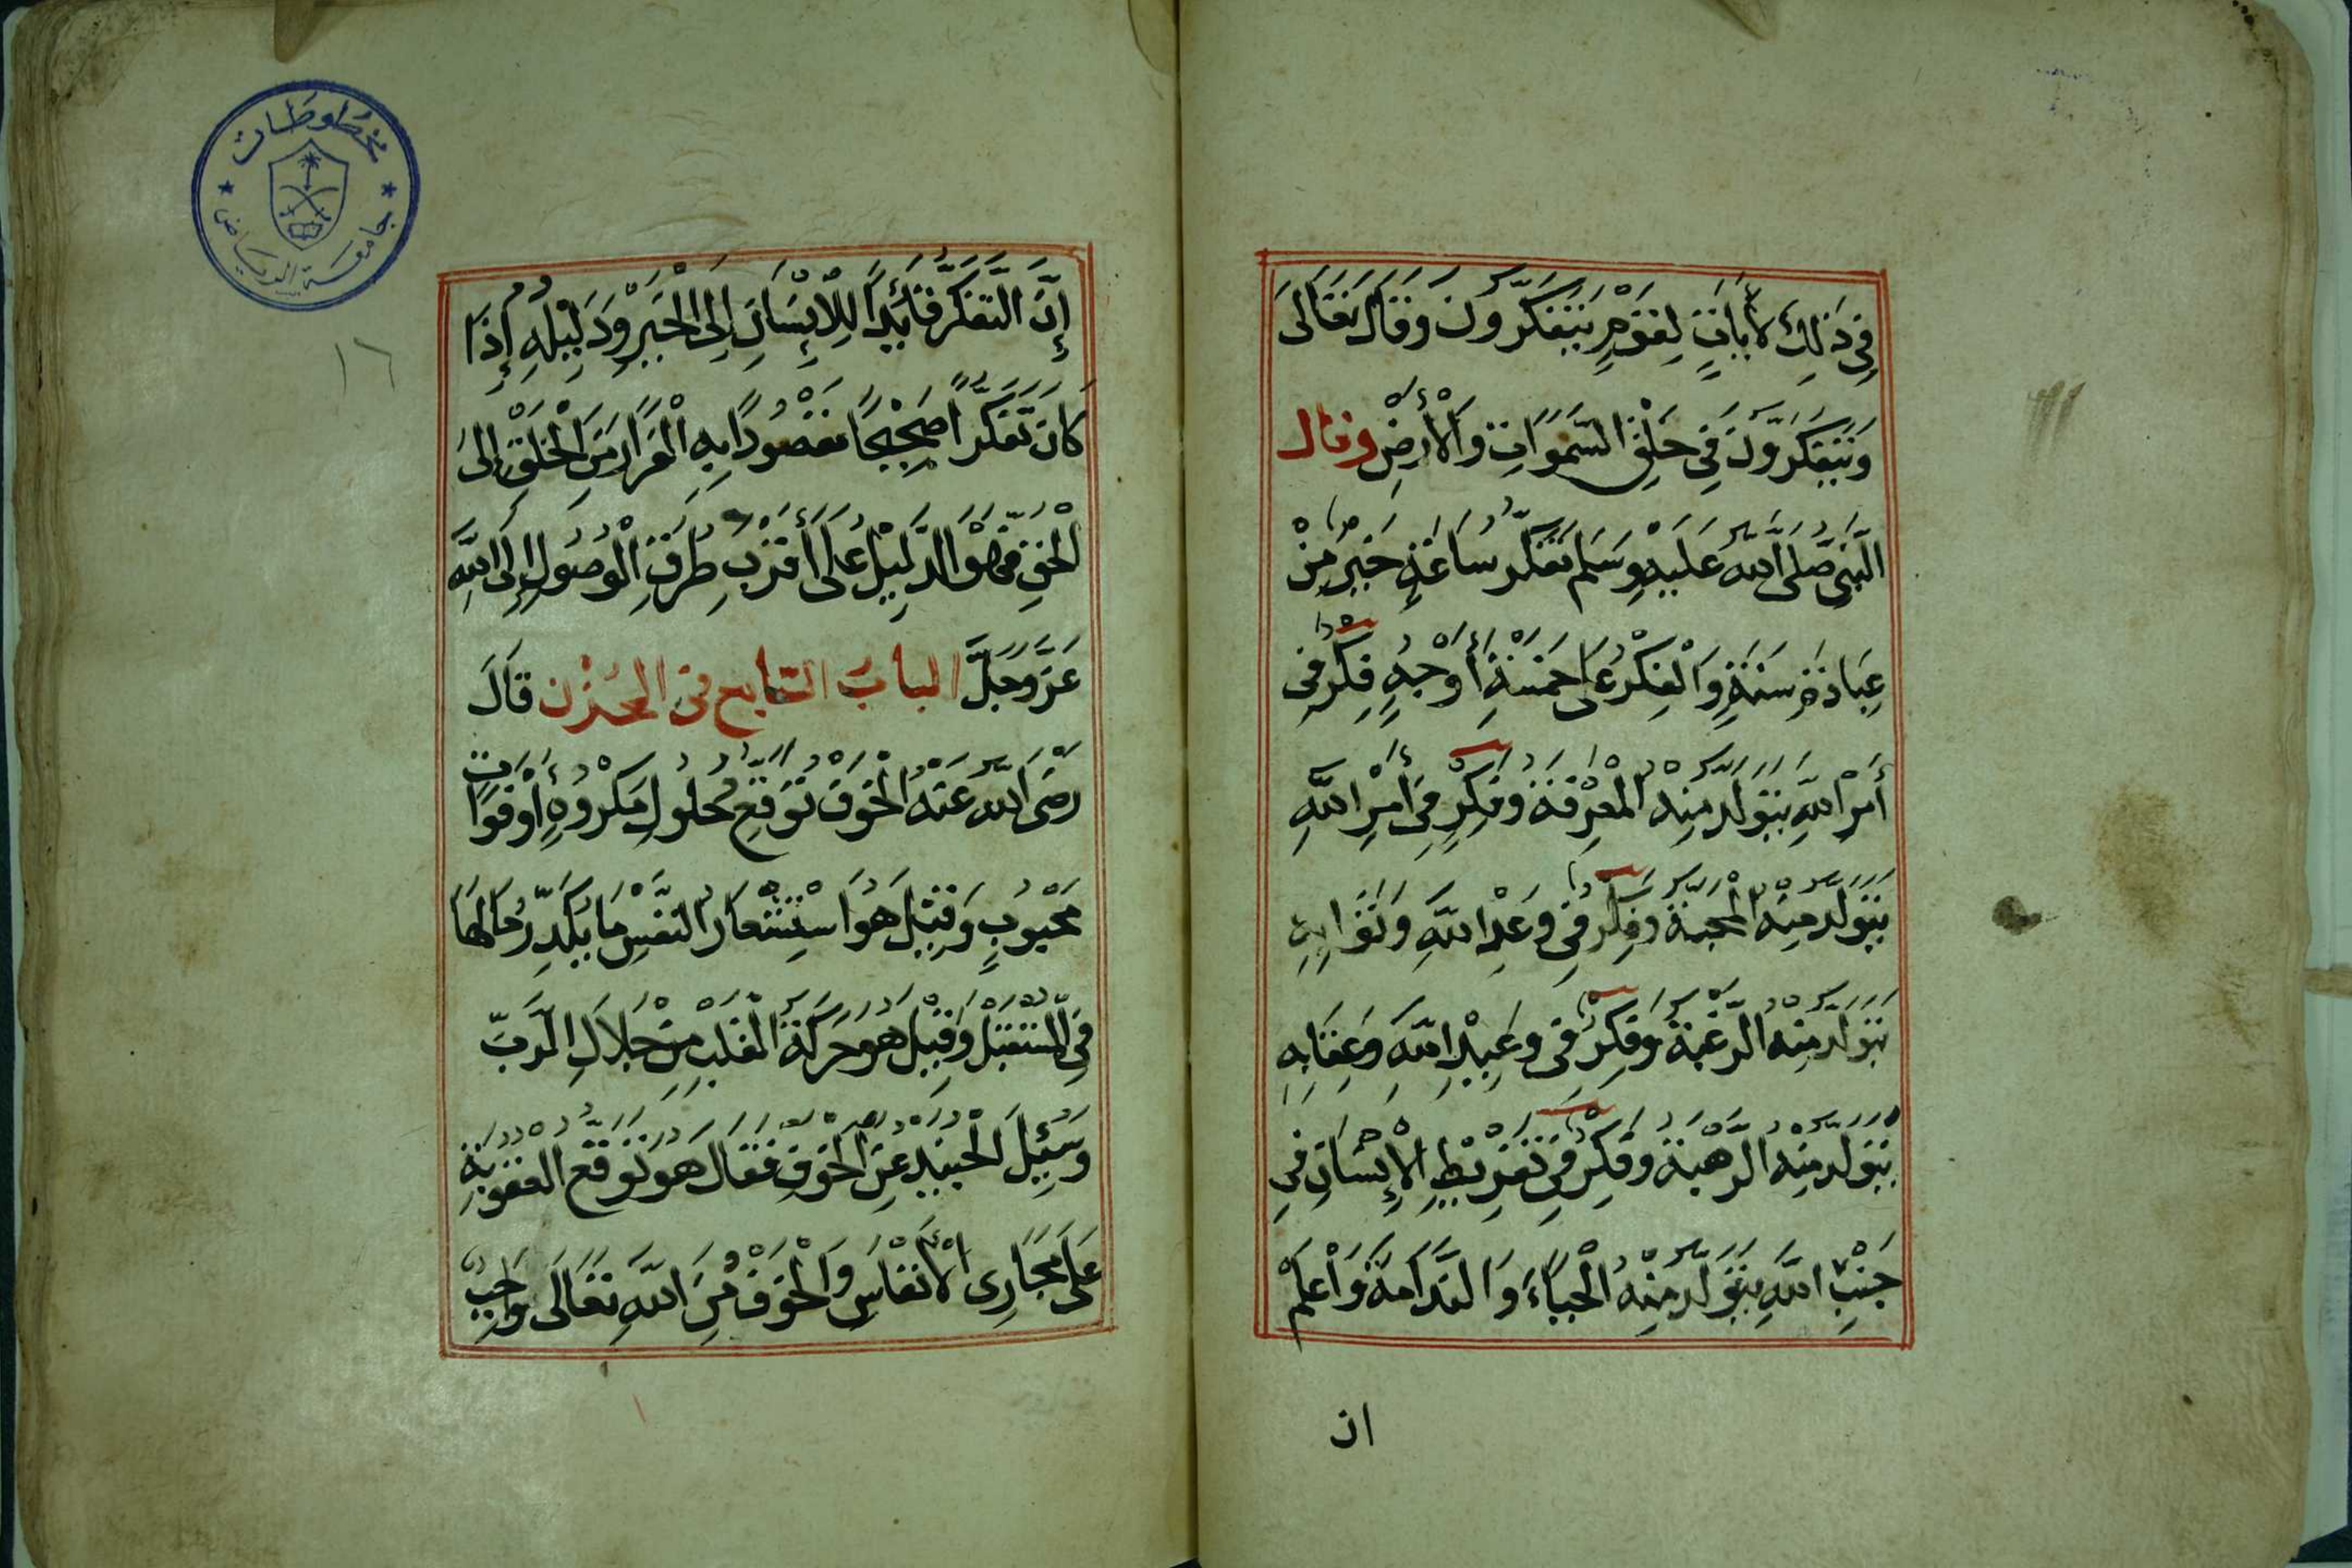 فِي ذَلِكَ لَأَيَاتٍ لِقَوْمٍ يَتَفَكَّرُونَ وَقَالَ تَعَالَى
وَيَتَفَكَّرُونَ فِي خَلْقِ السَّمَوَاتِ وَالْأَرْضِ وقال
النَّبِيُّ صَلَّى اللَّهُ عَلَيْهِ وَسَلَّمَ تَفَكُّرُ سَاعَةٍ خَيْرٌ مِنْ
عِبَادَةِ سَنَةٍ وَالْفِكْرُ عَلَى خَمْسَةِ أَوْجُهٍ فِكْرٌ فِي
أَمْرِ اللَّهِ يَتَوَلَّدُ مِنْهُ الْمَعْرِفَةُ وَفِكْرٌ فِي أَمْرِ اللَّهِ
يَتَوَلَّدُ مِنْهُ الْمَحَبَّةُ وَفِكْرٌ فِي وَعْدِ اللَّهِ وَثَوَابِهِ
يَتَوَلَّدُ مِنْهُ الرَّغْبَةُ وَفِكْرٌ فِي وَعِيدِ اللَّهِ وَعِقَابِهِ
يَتَوَلَّدُ مِنْهُ الرَّهْبَةُ وَفِكْرٌ فِي تَفْرِيطِ الْإِنْسَانِ فِي
جَنْبِ اللَّهِ يَتَوَلَّدُ مِنْهُ الْحَيَاءَ وَالنَّدَامَةَ وَاعْلَمْ
ان
مخطوطات
جامعة الرياض
١٦
إِنَّ التَّفَكُّرَ قَائِدًا لِلْإِنْسَانِ إِلَى الْخَيْرِ وَدَلِيلُهُ إِذَا
كَانَ تَفَكُّرًا صَحِيحًا مَقْصُودًا بِهِ الْفِرَارَ مِنَ الْخَلْقِ إِلَى
الْحَقِّ فَهُوَ الدَّلِيلُ عَلَى أَقْرَبِ طُرُقِ الْوُصُولِ إِلَى اللَّهِ
عَزَّ وَجَلَّ الباب السابع فى الحزن قَالَ
رَضِيَ اللَّهُ عَنْهُ الْخَوْفُ تَوَقُّعُ حُلُولِ مَكْرُوهٍ أَوْ فَوَاتِ
مَحْبُوبٍ وَقِيلَ هُوَ اسْتِشْعَارُ النَّفْسِ مَا يُكَدِّرُ حَالَهَا
فِي الْمُسْتَقْبَلِ وَقِيلَ هُوَ حَرَكَةُ الْقَلْبِ مِنْ جَلَالِ الرَّبِّ
وَسُئِلَ الْجُنَيْدُ عَنِ الْخَوْفِ فَقَالَ هُوَ تَوَقُّعُ الْعُقُوبَةِ
عَلَى مَجَارِي الْأَنْفَاسِ وَالْخَوْفُ مِنَ اللَّهِ تَعَالَى وَاجِبٌ